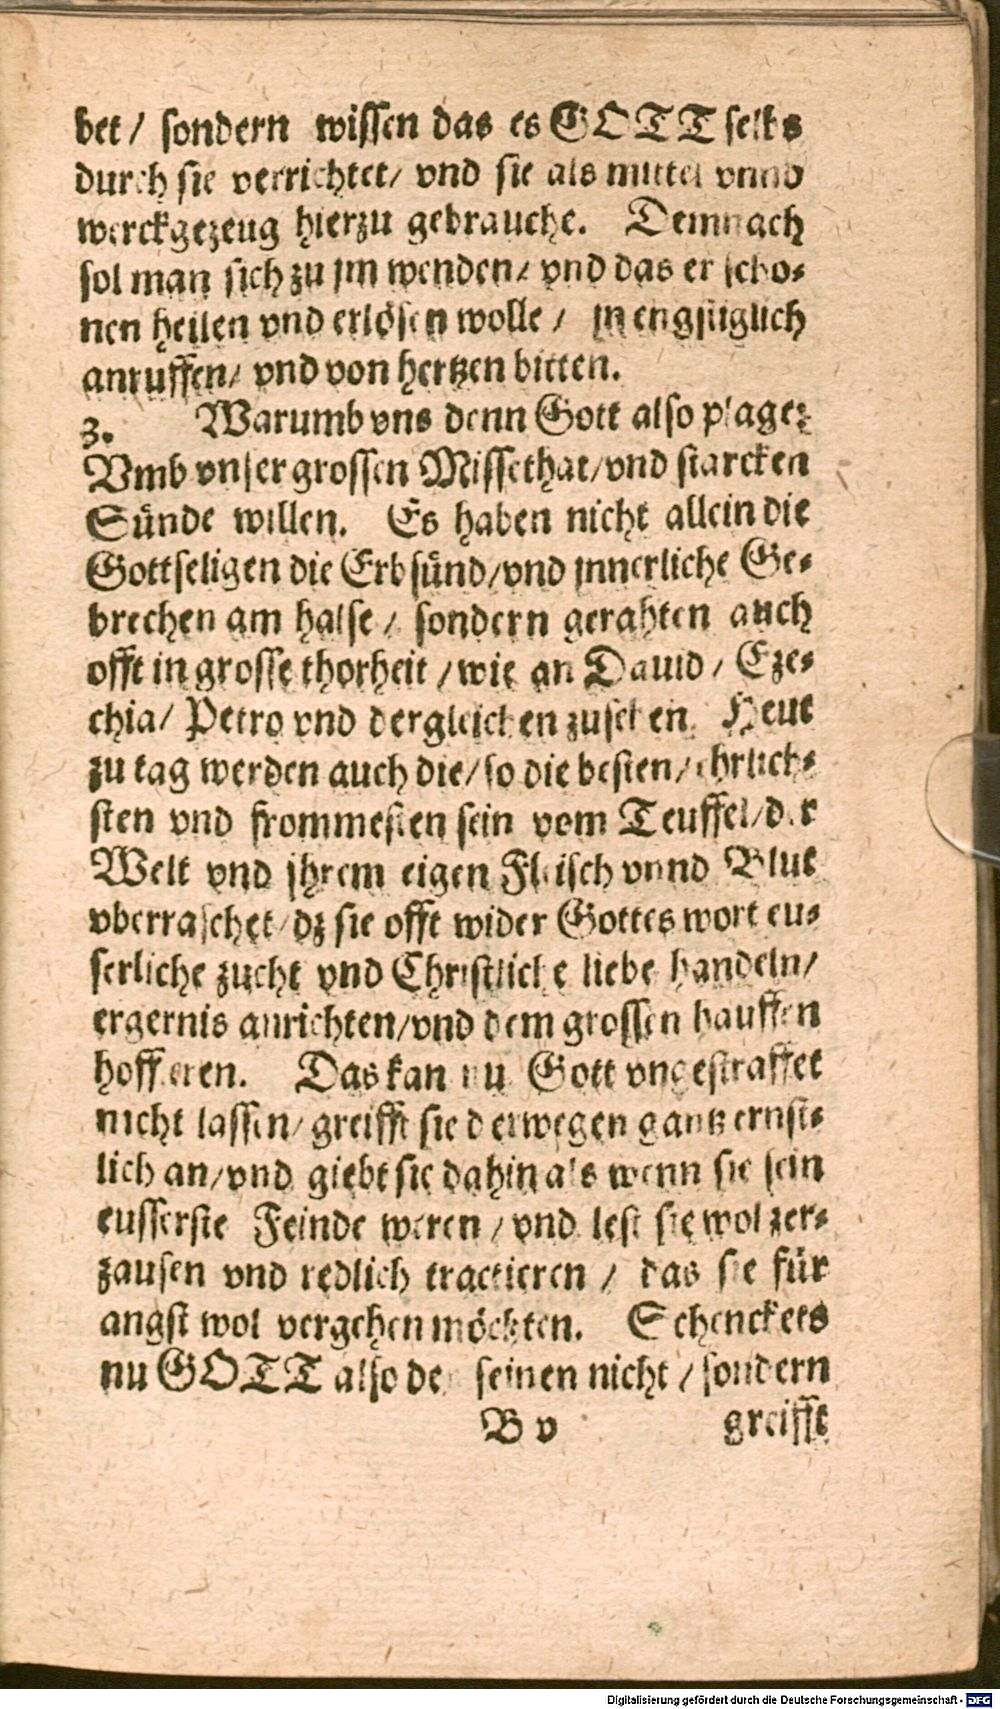 bet / sondern wissen das es GOTT selbs
durch sie verrichtet / vnd sie als mittel vnnd
werckgezeug hierzu gebrauche. Demnach
sol man sich zu jm wenden / vnd das er scho⸗
nen heilen vnd erlösen wolle /
anruffen / vnd von hertzen bitten.
3. Warumb vns denn Gott also plage?
Vmb vnser grossen Missethat / vnd starcken
Sünde willen. Es haben nicht allein die
Gottseligen die Erbsünd / vnd jnnerliche Ge⸗
brechen am halse / sondern gerahten auch
offt in grosse thorheit / wie an Dauid / Eze⸗
chia / Petro vnd dergleichen zusehen. Heut
zu tag werden auch die / so die besten / ehrlich⸗
sten vnd frommesten sein vom Teuffel / der
Welt vnd jhrem eigen Fleisch vnnd Blut
vberraschet / dz sie offt wider Gottes wort eu⸗
serliche zucht vnd Christliche liebe handeln /
ergernis anrichten / vnd dem grossen hauffen
hofieren. Das kan nu Gott vngestraffet
nicht lassen / greifft sie derwegen gantz ernst⸗
lich an / vnd giebt sie dahin als wenn sie sein
eusserste Feinde weren / vnd lest sie wol zer⸗
zausen vnd redlich tractieren / das sie für
angst wol vergehen möchten. Schenckets
nu GOTT also den seinen nicht / sondern
B v greifft
Digitalisierung gefördert durch die Deutsche Forschungsgemeinschaft - DFG